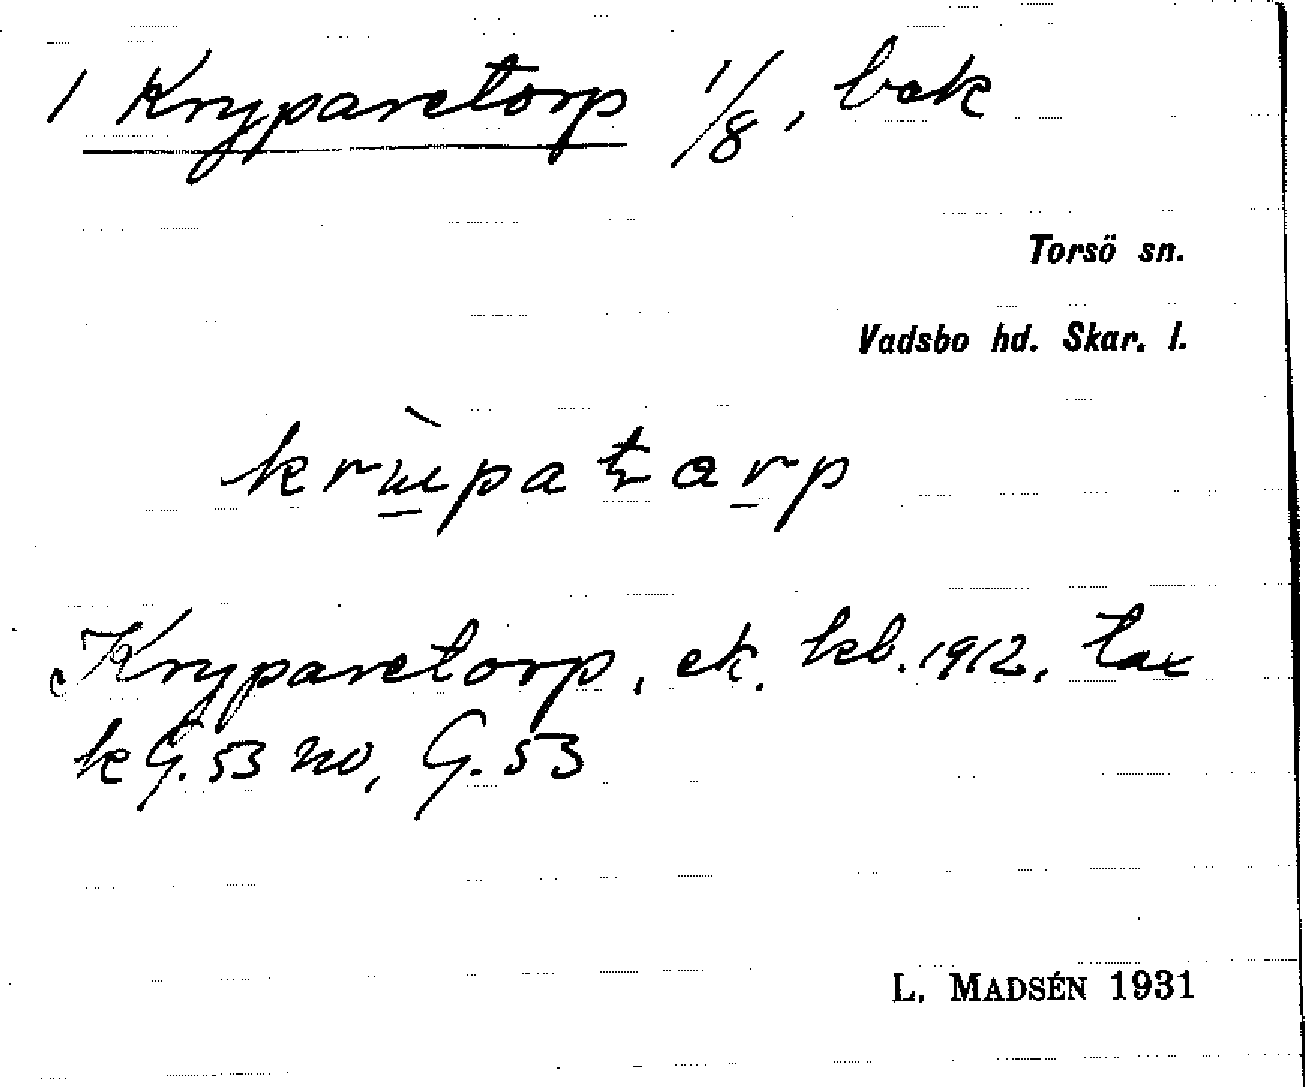 1 Kryparetorp 1/8, bek
Torsö sn.
Vadsbo hd. Skar. l.
Kryparetorp, ek. kb. 1912, tax
k G. 53 no, G. 53
L. MADSÉN 1931